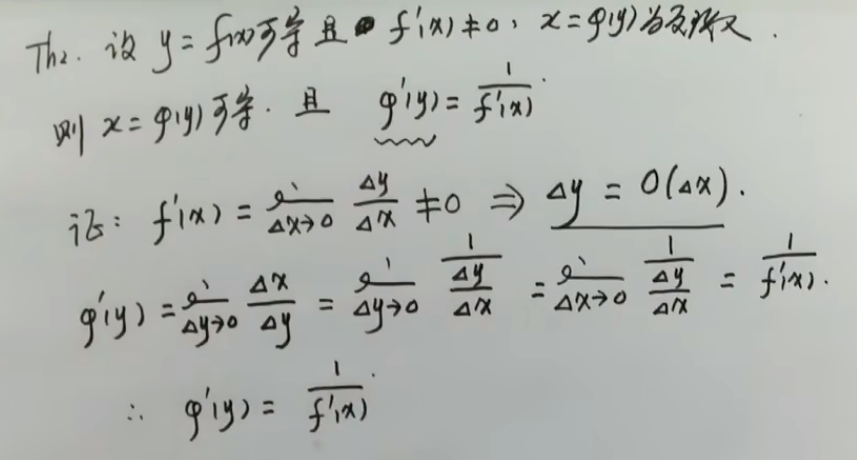 Th2. 设 y = f(x)可导且 f'(x) ≠ 0, x = φ(y)为反函数.
则 x = φ(y)可导. 且 φ'(y) = 1/f'(x).
证: f'(x) = lim Δx→0 Δy/Δx ≠ 0 ⇒ Δy = O(Δx).
φ'(y) = lim Δy→0 Δx/Δy = lim Δy→0 1/(Δy/Δx) = lim Δx→0 1/(Δy/Δx) = 1/f'(x).
∴ φ'(y) = 1/f'(x).